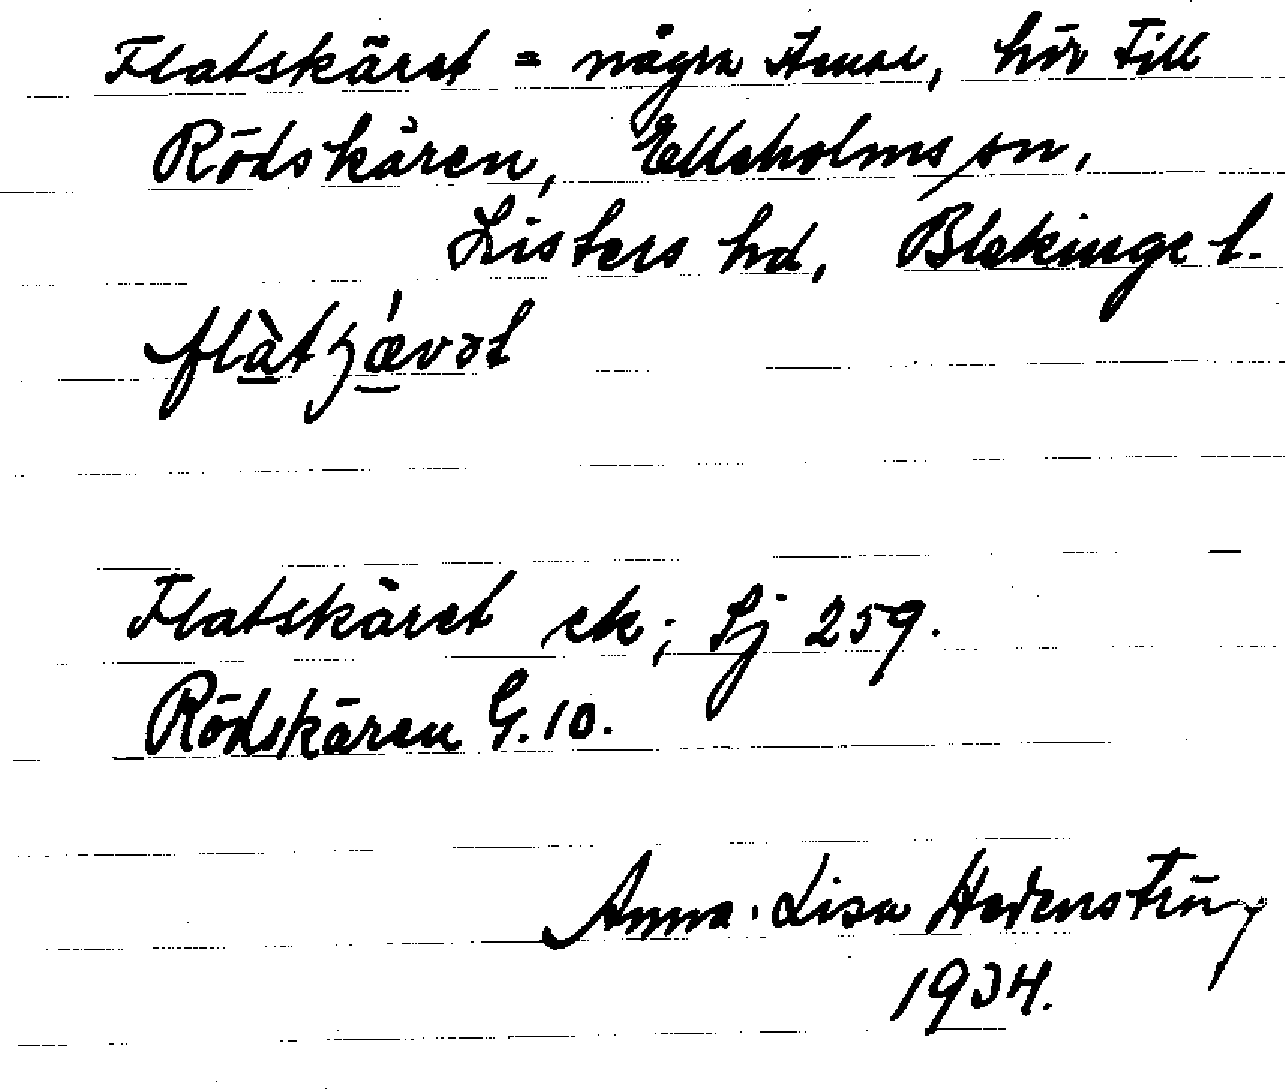 Flatskäret = några stenar, hör till
Rödskären, Elleholms sn,
Listers hd, Blekinge l.
Flatskäret ek; Sj 259.
Rödskären G. 10.
Anna-Lisa
1934.